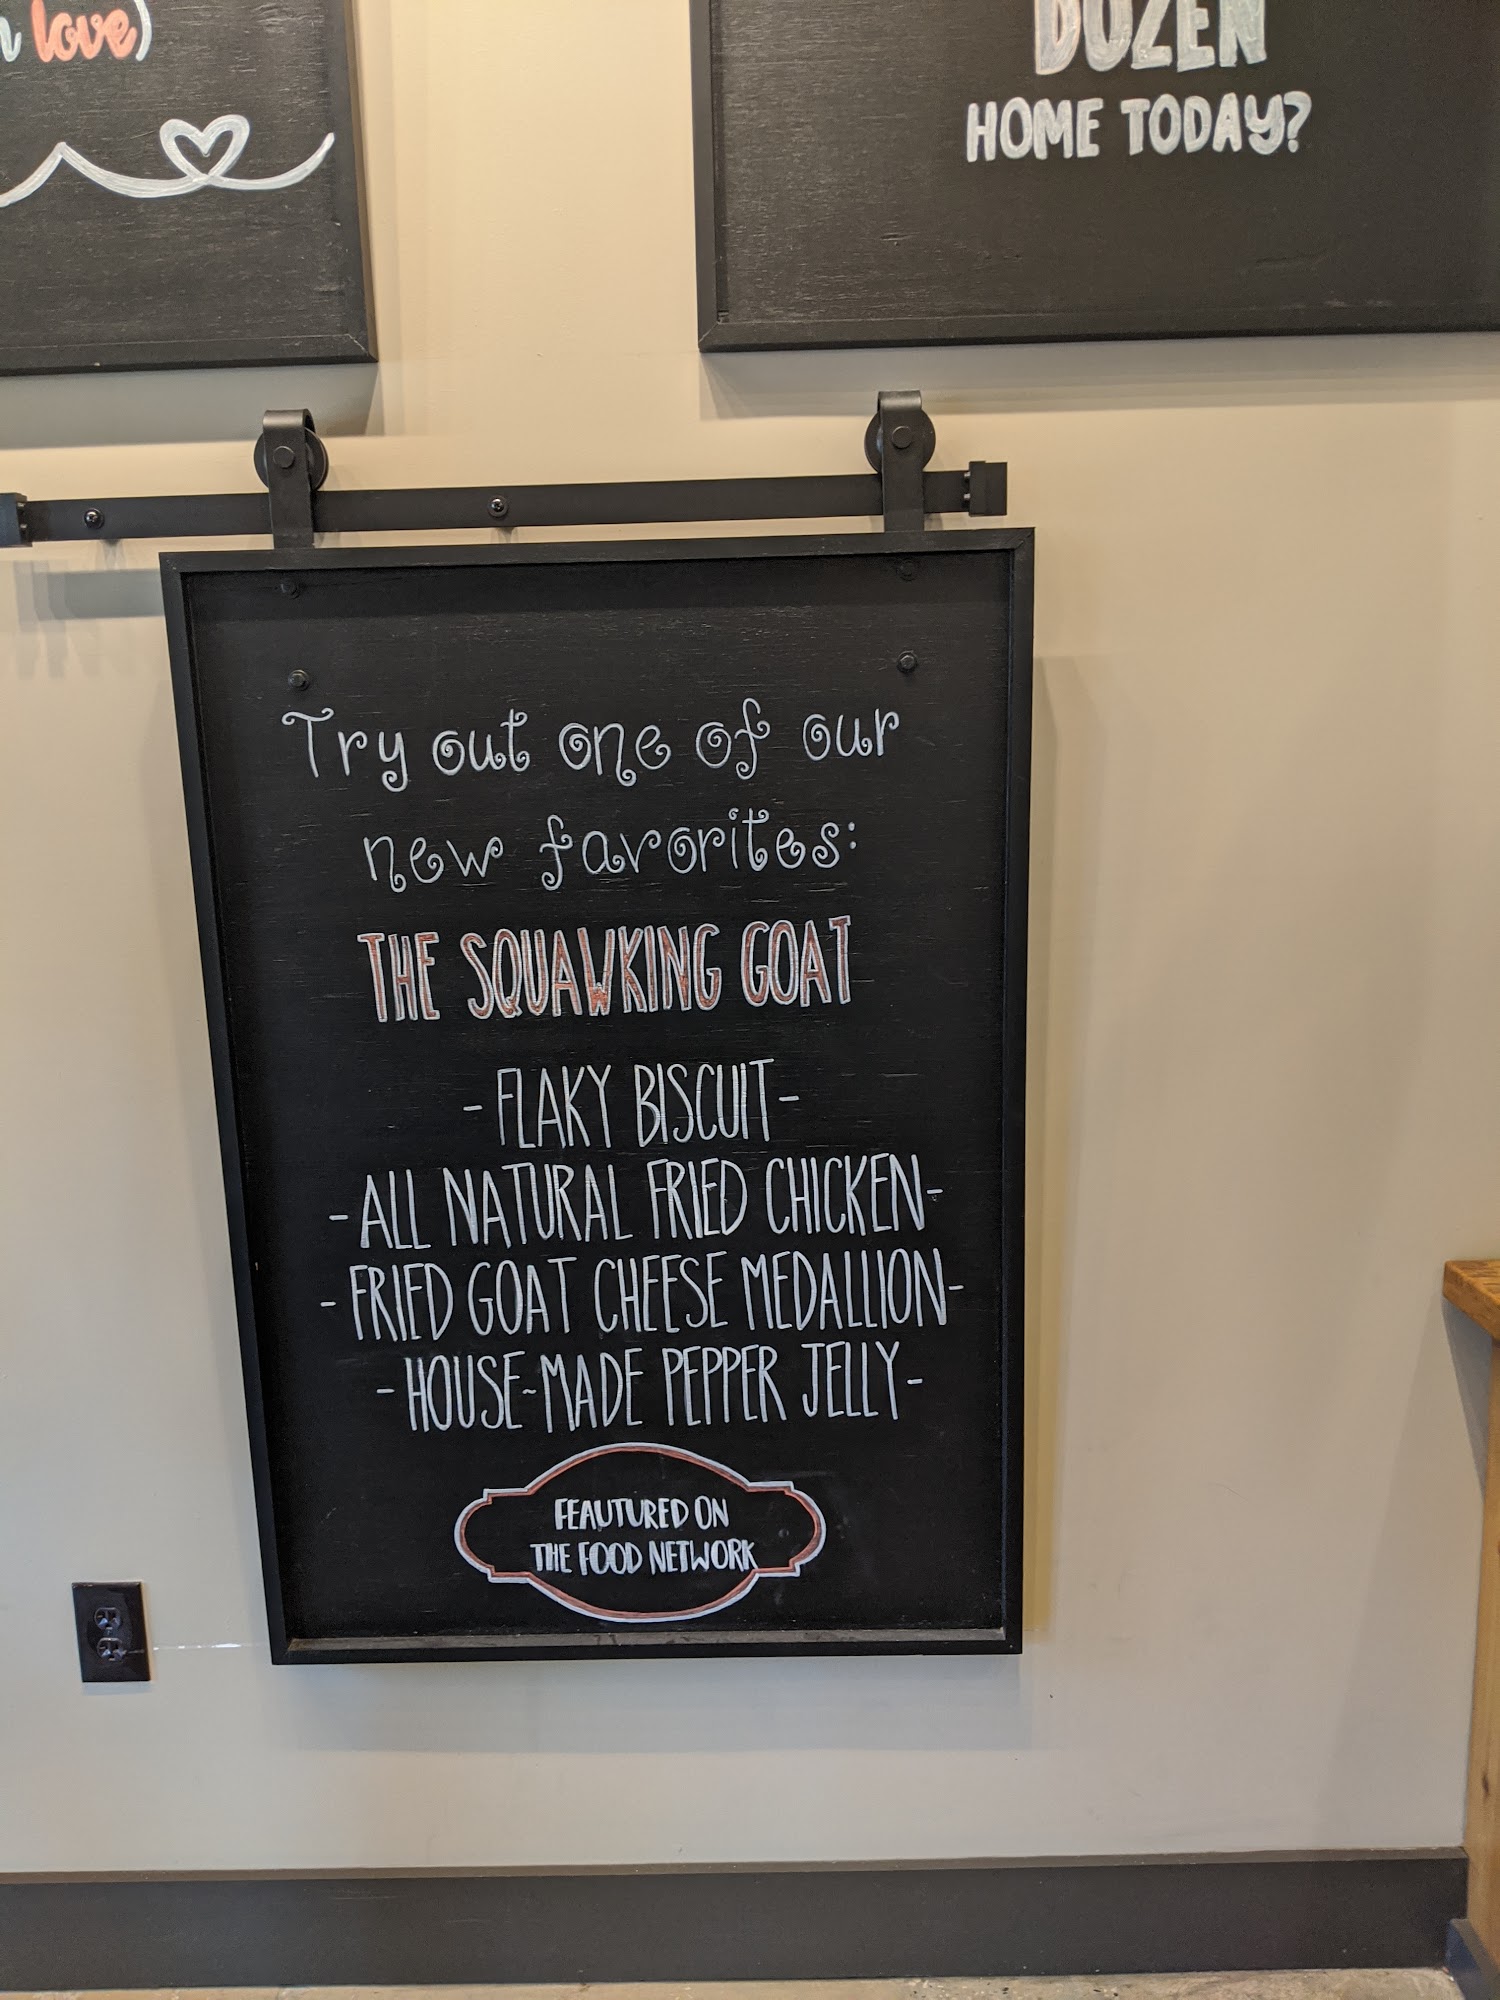 love)
DOZEN
HOME TODAY?
Try out one of our
new favorites:
THE SQUAWKING GOAT
-FLAKY BISCUIT-
-ALL NATURAL FRIED CHICKEN-
-FRIED GOAT CHEESE MEDALLION-
-HOUSE-MADE PEPPER JELLY-
FEAUTURED ON
THE FOOD NETWORK